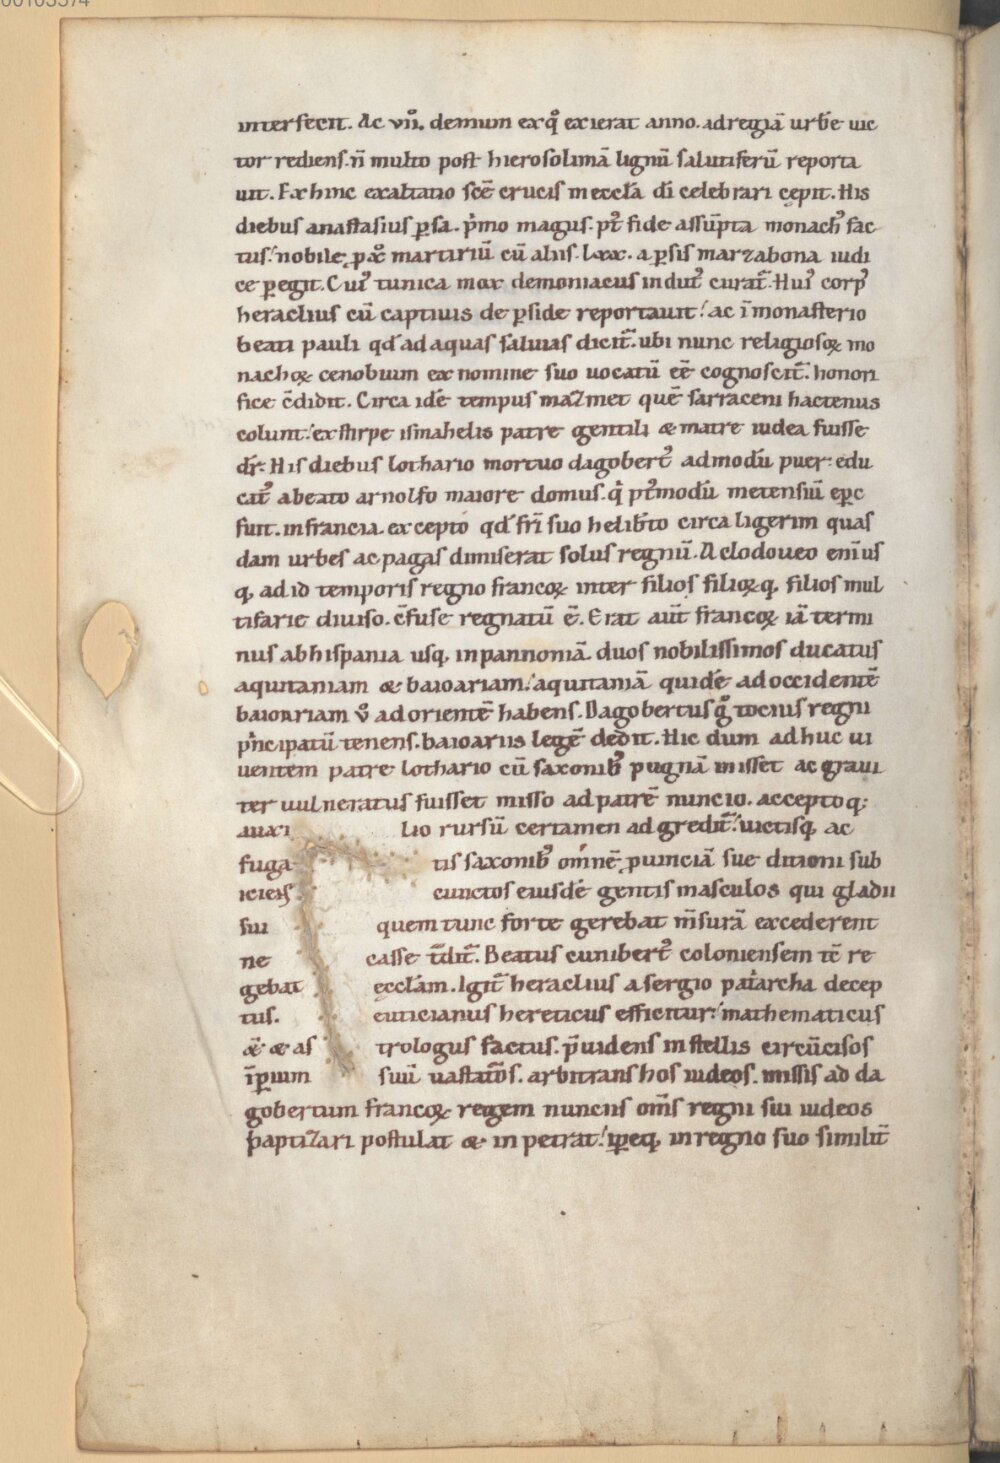 00103574
interfecit. Ac vii. demum ex qͦ exierat anno. ad regiā urbē uic
tor rediens. n̄ multo post hierosolimā lignū salutiferū reporta
uit. Ex hinc exaltatio scē crucis in eccla di celebrari cępit. His
diebus anastasius ꝑsa. pͥmo magus. pꝰt fide assūpta monachꝰ fac
tus. nobile ꝓ xͦ martiriū cū aliis. lxx. a ꝑsis marzabona iudi
ce ꝑegit. Cuiꝰ tunica mox demoniacus indutꝰ curat̄. Huiꝰ corpꝰ
heraclius cū captiuis de ꝑside reportauit. ac ī monasterio
beati pauli qđ ad aquas saluias dicit̄. ubi nunc religiosoꝝ mo
nachoꝝ cenobium ex nomine suo uocatū eē cognoscit̄. honori
fice c̄didit. Circa idē tempus maꝛmet quē sarraceni hactenus
colunt. ex stirpe ismahelis patre gentili & matre iudea fuisse
dr̄. His diebus lothario mortuo dagobertꝰ admodū puer. edu
catꝰ a beato arnolfo maiore domus. qͥ pꝰtmodū metensiū epc
fuit. in francia. excepto qđ frī suo helibͭto circa ligerim quas
dam urbes ac pagas dimiserat solus regnū. A clodoueo enī us
q, ad id temporis regno francoꝝ inter filios filioꝝq, filios mul
tifarie diuiso. c̄fuse regnatū ē. Erat aut̄ francoꝝ iā termi
nus ab hispania usq, in pannoniā. duos nobilissimos ducatus
aquitaniam & baioariam. aquitaniā quidē ad occidentē
baioariam vͦ ad orientē habens. Dagobertus gͦ tocius regni
pͥncipatū tenens. baioariis legē dedit. Hic dum adhuc ui
uentem patre lothario cū saxonibꝰ pugnā inisset ac graui
ter uulneratus fuisset misso ad patrē nuncio. accepto q;
auxi lio rursū certamen adgredit̄. uictisq, ac
fuga tis saxonibꝰ omnē ꝓuinciā sue ditioni sub
iciens cunctos eiusdē gentis masculos qui gladii
sui quem tunc forte gerebat m̄surā excederent
ne casse t̄dit̄. Beatus cunibertꝰ coloniensem tc̄ re
gebat ęcclām. Igit̄ heraclius a sergio pat̄archa decep
tus. euticianus hereticus efficitur. mathematicus
& as trologus factus. p̄uidens in stellis circūcisos
īꝑium suū uastatͦs. arbitrans hos iudeos. missis ad da
gobertum francoꝝ regem nunciis om̄s regni sui iudeos
baptizari postulat & inpetrat. ipeq, in regno suo similit̄